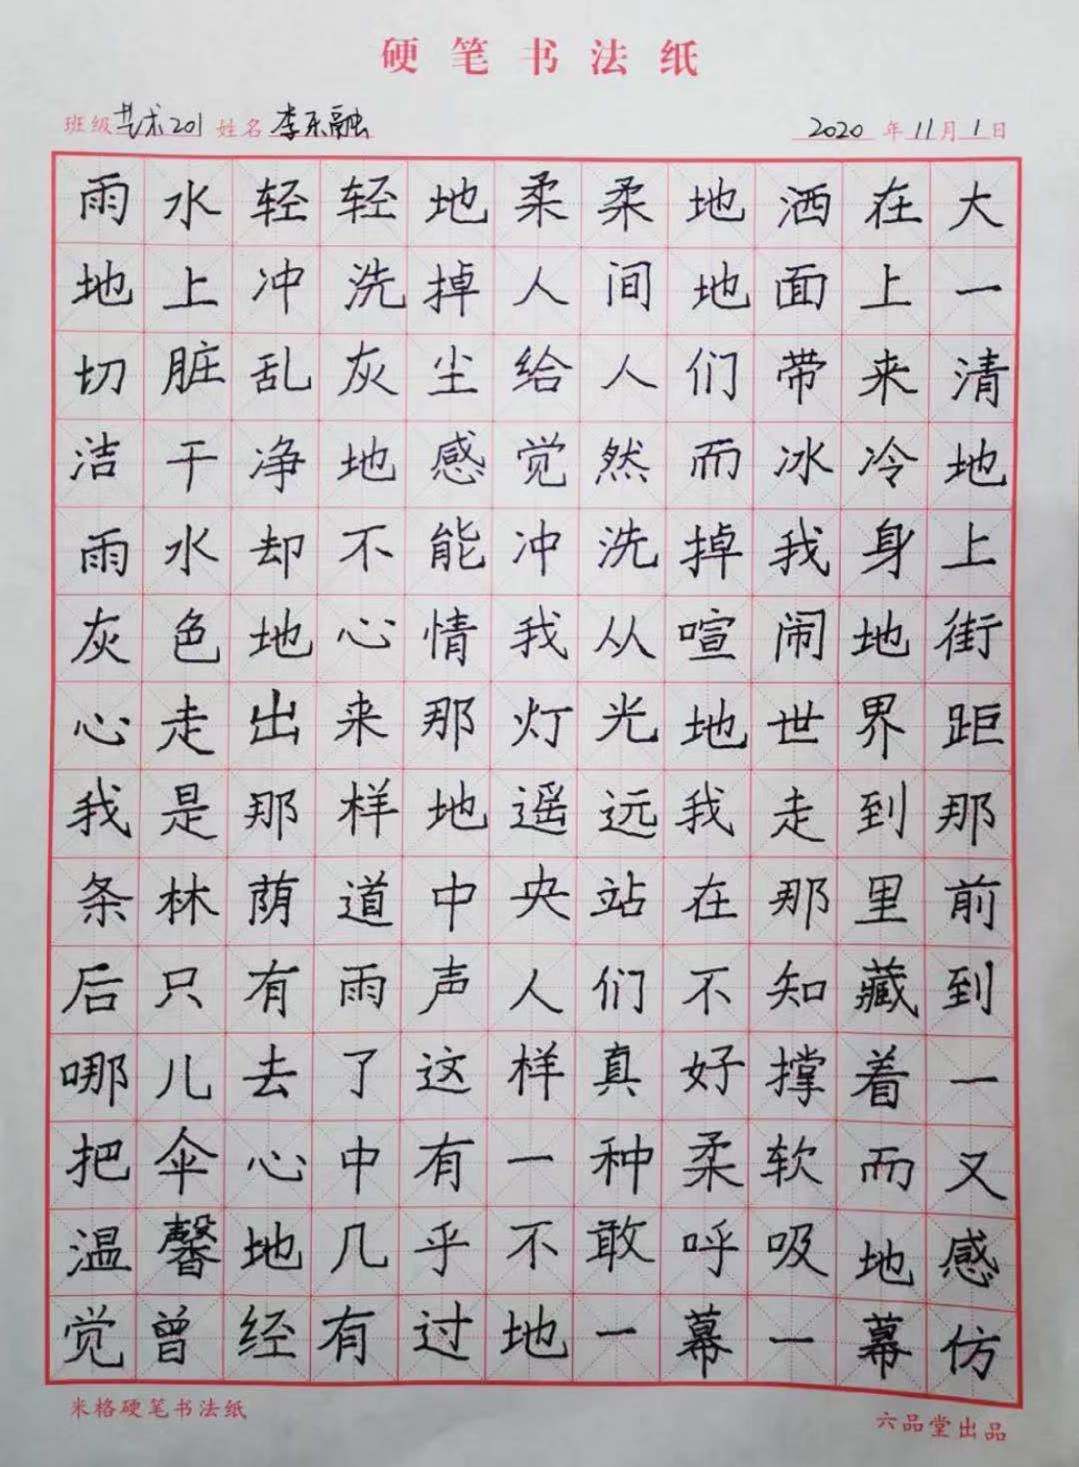 硬笔书法纸
班级 艺术201 姓名 李乐融 2020年11月1日
雨水轻轻地柔柔地洒在大
地上冲洗掉人间地面上一
切脏乱灰尘给人们带来清
洁干净地感觉然而冰冷地
雨水却不能冲洗掉我身上
灰色地心情我从喧闹地街
心走出来那灯光地世界距
我是那样地遥远我走到那
条林荫道中央站在那里前
后只有雨声人们不知藏到
哪儿去了这样真好撑着一
把伞心中有一种柔软而又
温馨地几乎不敢呼吸地感
觉曾经有过地一幕一幕仿
米格硬笔书法纸 六品堂出品